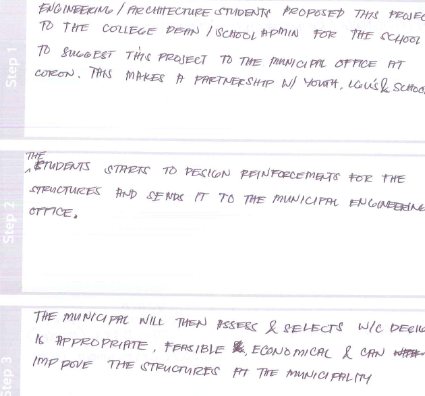 Step 1
ENGINEERING / ARCHITECTURE STUDENTS PROPOSED THIS PROJEC
TO THE COLLEGE DEAN / SCHOOL ADMIN FOR THE SCHOOL
TO SUGGEST THIS PROJECT TO THE MUNICIPAL OFFICE AT
CORON. THIS MAKES A PARTNERSHIP W/ YOUTH, LGU'S & SCHOO
Step 2
THE
STUDENTS STARTS TO DESIGN REINFORCEMENTS FOR THE
STRUCTURES AND SENDS IT TO THE MUNICIPAL ENGINEERING
OFFICE.
Step 3
THE MUNICIPAL WILL THEN ASSESS & SELECTS W/C DESIG
IS APPROPRIATE, FEASIBLE, ECONOMICAL & CAN
IMPROVE THE STRUCTURES AT THE MUNICIPALITY